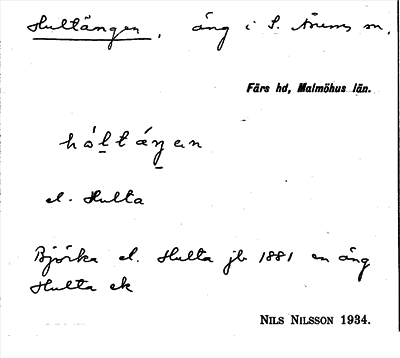 Hultängen, äng i S. Åsums sn,
Färs hd, Malmöhus län.
hóltáŋen
el. Hulta
Björka el. Hulta jb 1881 en äng
Hulta ek
NILS NILSSON 1934.